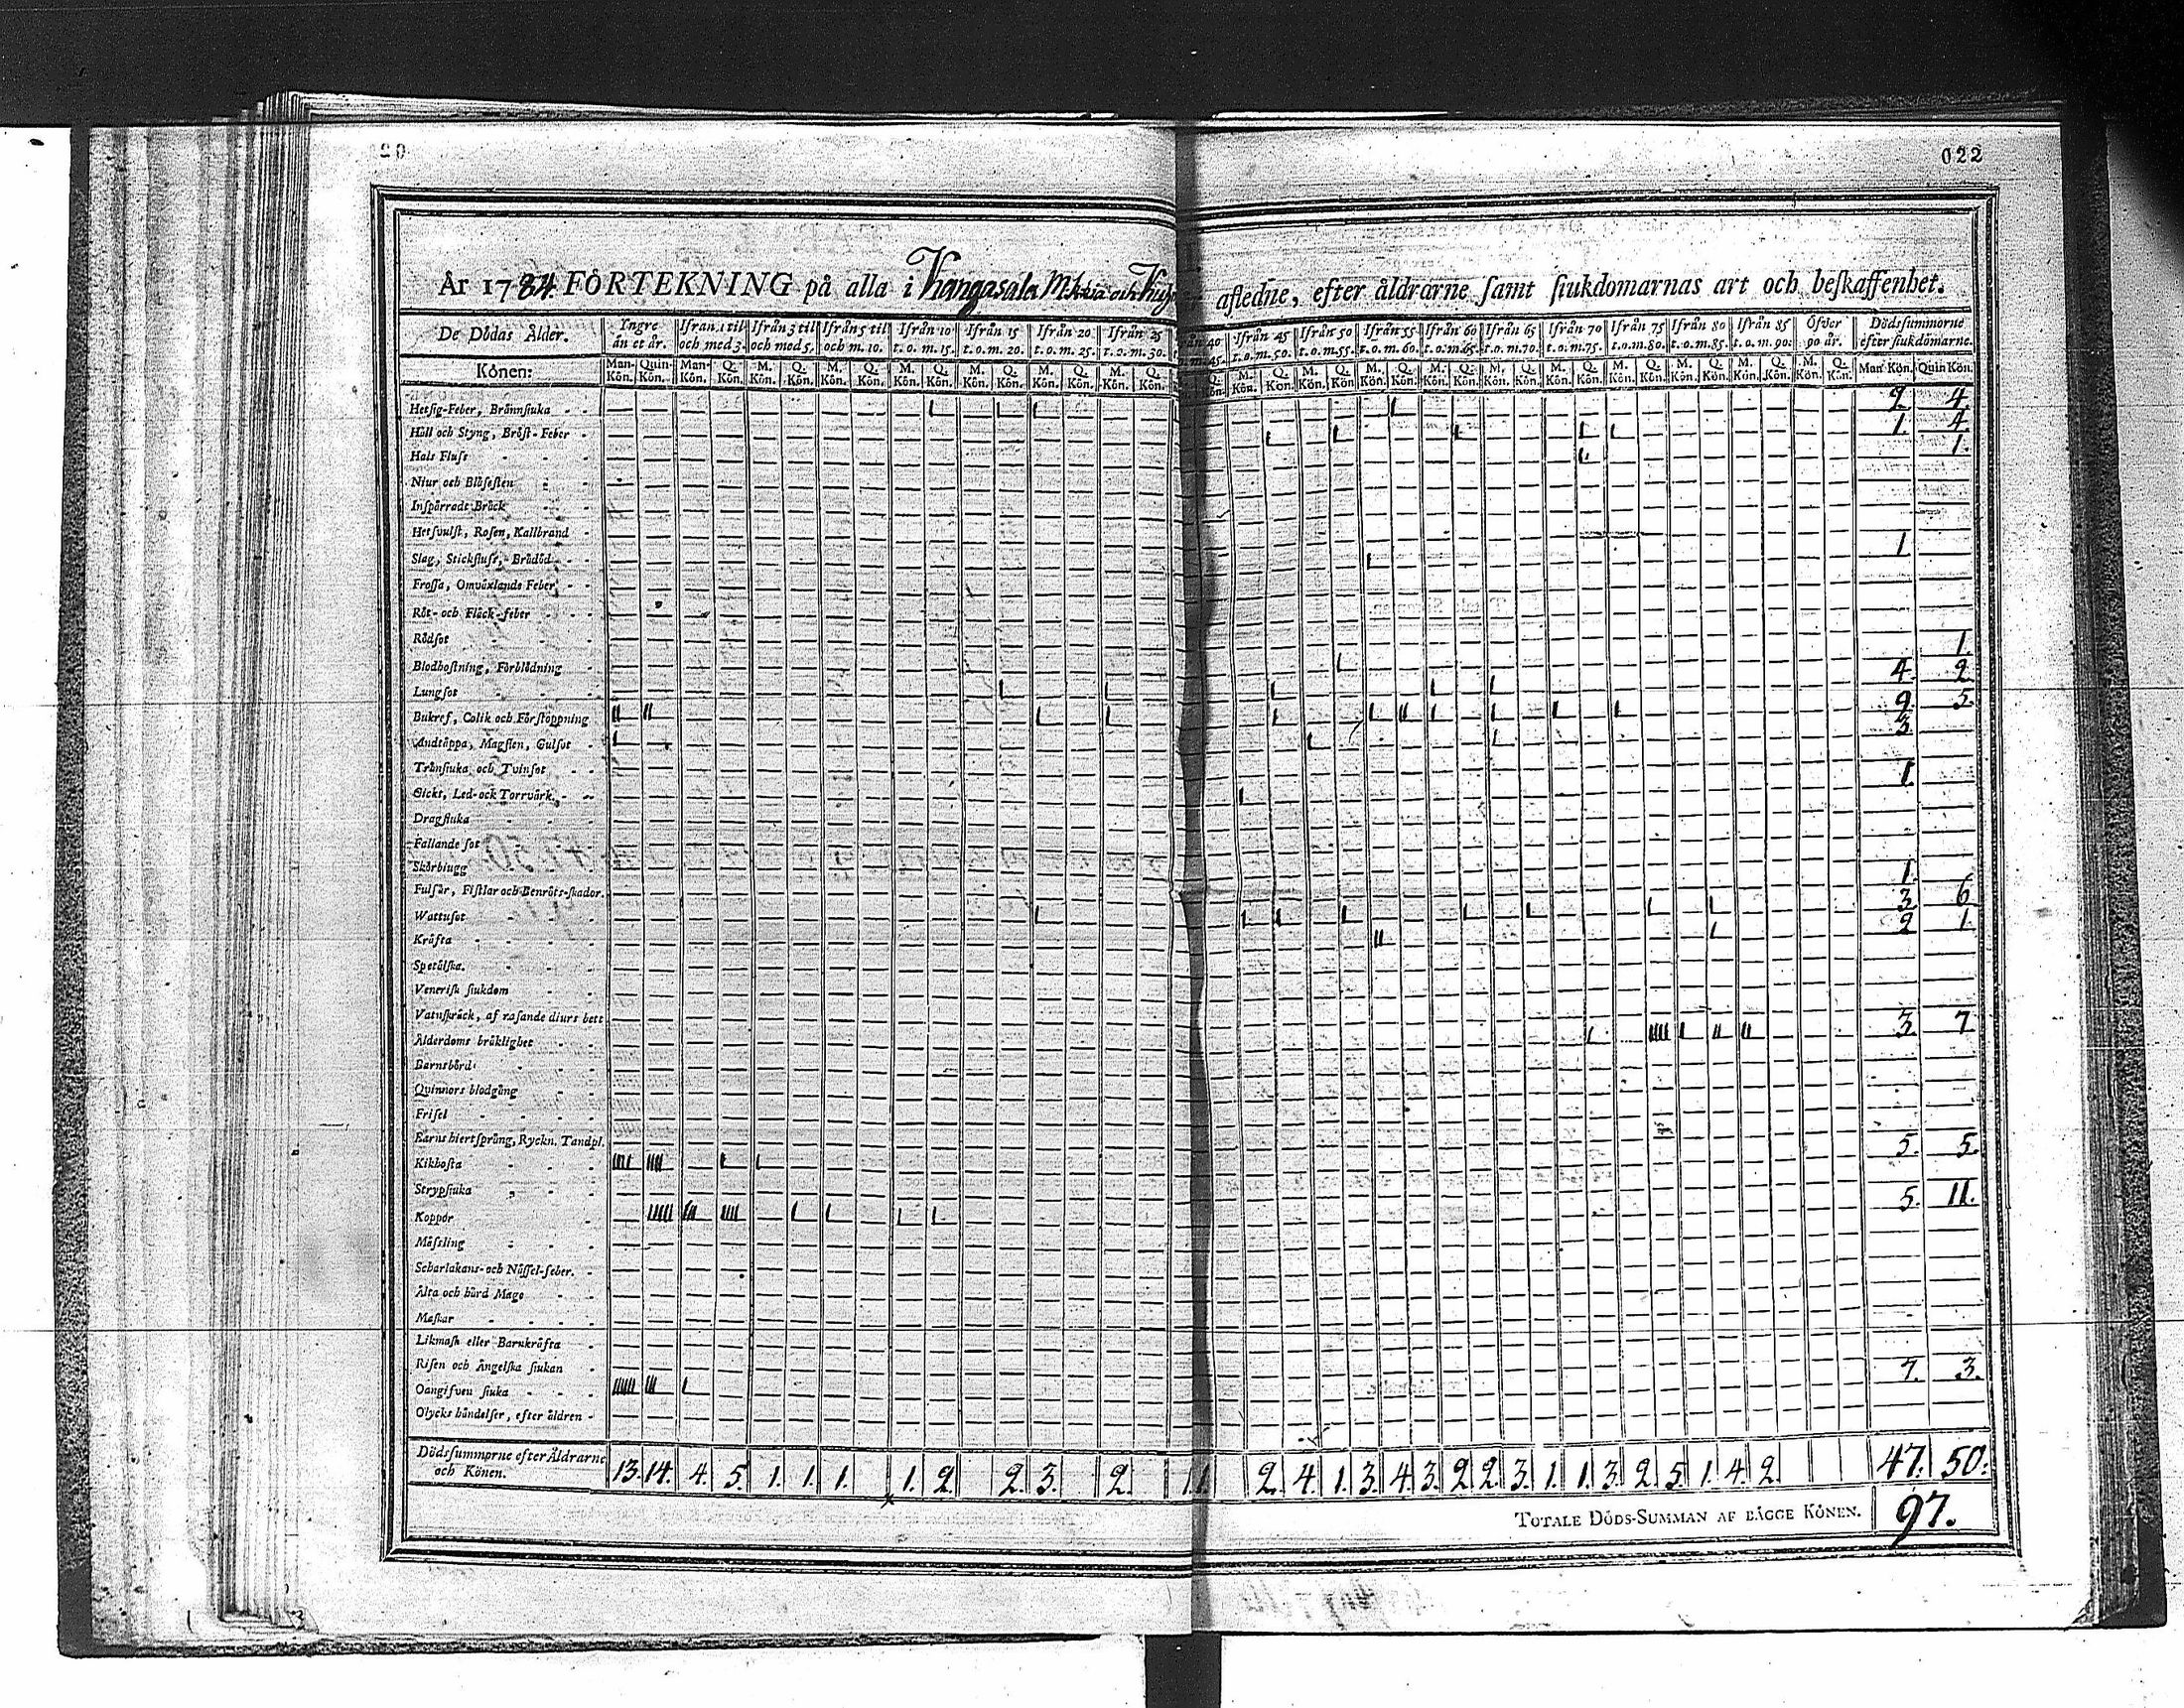 20
022
År 1784. FÖRTEKNING på alla i Kangasala afledne, efter åldrarne samt siukdomarnas art och beskaffenhet.
De Dödas Ålder. Yngre än et år. Ifrån 1 til och med 3. Ifrån 3 til och med 5. Ifrån 5 til och m. 10. Ifrån 10 t. o. m. 15. Ifrån 15 t. o. m. 20. Ifrån 20 t. o. m. 25. Ifrån 25 t. o. m. 30. Ifrån 45 t. o. m. 50. Ifrån 50 t. o. m. 55. Ifrån 55 t. o. m. 60. Ifrån 60 t. o. m. 65. Ifrån 65 t. o. m. 70. Ifrån 70 t. o. m. 75. Ifrån 75 t. o. m. 80. Ifrån 80 t. o. m. 85. Ifrån 85 t. o. m. 90. Öfver 90 år. Dödssummorne efter siukdomarne.
Könen: Man-Kön. Quin-Kön. Man-Kön. Q. Kön. M. Kön. Q. Kön. M. Kön. Q. Kön. M. Kön. Q. Kön. M. Kön. Q. Kön. M. Kön. Q. Kön. M. Kön. Q. Kön. Q. Kön. M. Kön. Q. Kön. M. Kön. Q. Kön. M. Kön. Q. Kön. M. Kön. Q. Kön. M. Kön. Q. Kön. M. Kön. Q. Kön. M. Kön. Q. Kön. M. Kön. Q. Kön. M. Kön. Q. Kön. M. Kön. Q. Kön. Man Kön. Quin Kön.
Hetsig-Feber, Brännsiuka 2 4
Håll och Styng, Bröst-Feber 1 4
Hals Fluss 1.
Niur och Blåsesten
Inspärradt Bråck
Hetsvulst, Rosen, Kallbrand
Slag, Stickfluss, Brådöd 1
Frossa, Omväxlande Feber
Röt- och Fläck-feber
Rödsot
Blodhostning, Förblödning 1.
Lungsot 4 2
Bukref, Colik och Förstoppning 9 5.
Andtäppa, Magsien, Gulsot 3
Trånsiuka och Tvinsot
Gickt, Led- och Torrvärk 1
Dragsiuka
Fallande sot
Skörbiugg
Fulsår, Fistlar och Benröts-skador. 1.
Wattusot 3 6
Kräfta 2 1.
Spetälska.
Venerisk siukdom
Vatuskräck, af rasande diurs bett
Ålderdoms bräklighet 3. 7
Barnsbörd
Quinnors blodgång
Frisel
Barns hiertsprång, Ryckn. Tandpl.
Kikhosta 5. 5.
Strypsiuka
Koppor 5. 11.
Mässling
Scharlakans- och Nässel-feber.
Älta och hård Mage
Maskar
Likmask eller Barnkräfta
Risen och Ängelska siukan
Oangifven siuka 7. 3.
Olycks händelser, efter åldren
Dödssummorne efter Åldrarne och Könen. 13. 14. 4. 5. 1. 1. 1. 1. 2. 2. 3. 2. 1. 1. 2. 4. 1. 3. 4. 3. 2. 2. 3. 1. 1. 3. 2. 5. 1. 4. 2. 47. 50.
TOTALE DÖDS-SUMMAN AF BÄGGE KÖNEN. 97.